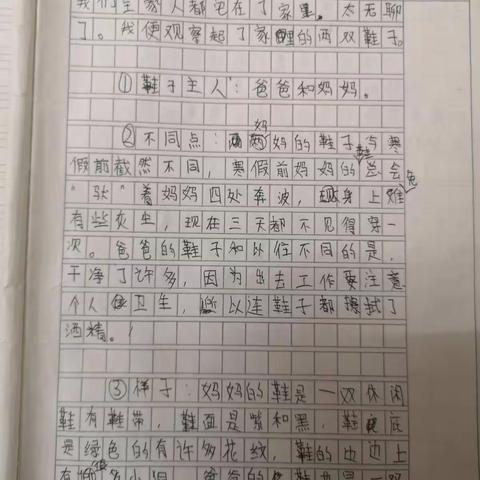 我们全家人都宅在了家里。太无聊
了。我便观察起了家里的两双鞋子。
①鞋子主人:爸爸和妈妈。
②不同点:妈妈的鞋子与寒
假前截然不同,寒假前妈妈的鞋总会
"驮"着妈妈四处奔波,身上难免
有些灰尘,现在三天都不见得穿一
次。爸爸的鞋子和以往不同的是,
干净了许多,因为出去工作要注意
个人卫生,所以连鞋子都擦拭了
酒精。
③样子:妈妈的鞋是一双休闲
鞋有鞋带,鞋面是紫和黑,鞋底
是绿色的有许多花纹,鞋的边上
有